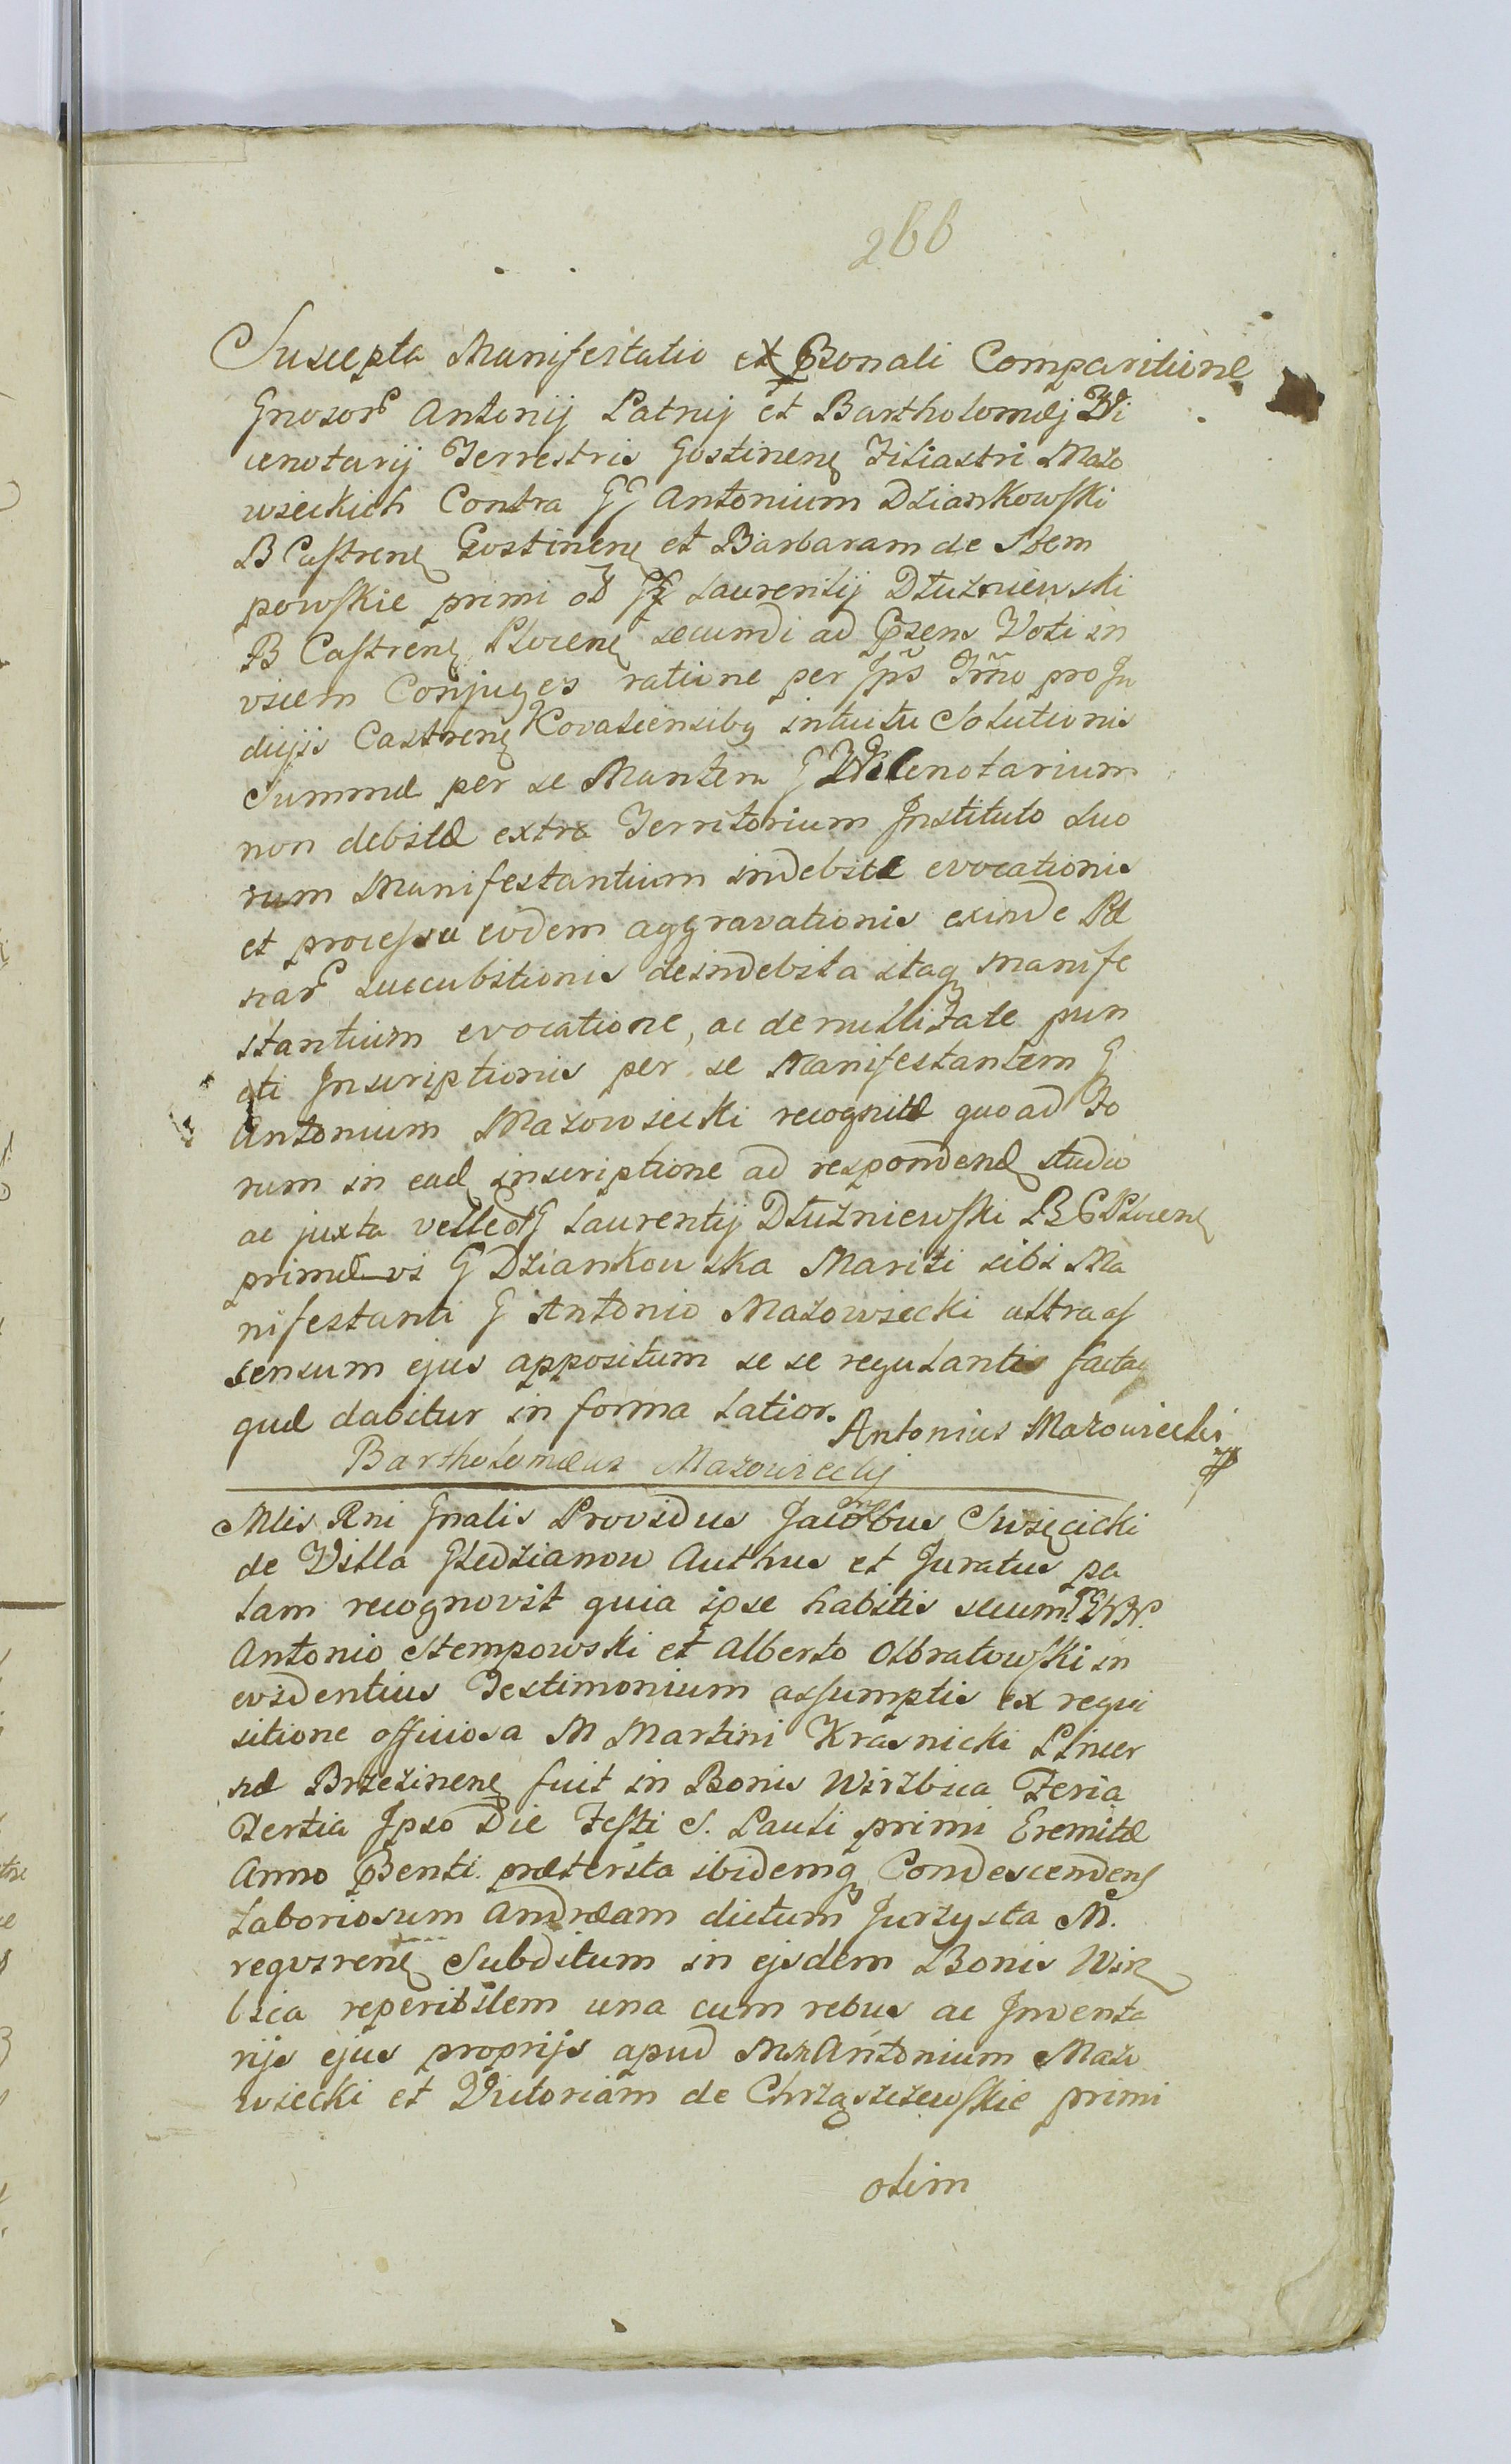 266
Suscepta Manifestatio ex Psonali Comparitione
Gnosor Antonij Patruj et Bartholomæj Vi
cenotarij Terrestris Gostinen Filiastri Mazo
wieckich Contra GG Antonium Dziankowski
B Castren Gostinen et Barbaram de Stem
powskie primi ol G Laurentij Dłużniewski
B Castren Plocen secundi ad Psens Voti in
vicem Conjuges ratione per Ipõs Trño pro Ju
dijs Castren Kovaliensibq intuitu Solutionis
Summæ per se Manten G Vicenotarium
non debitæ extra Territorium Instituto suo
rum Manifestantium indebitæ evocationis
et processu eodem aggravationis exinde Pæ
nar succubitionis de indebita itaq manife
stantium evocatione, ac de nullitate pun
cti Inscriptionis per se Manifestantem G
Antonium Mazowiecki recognitæ quoad Fo
rum in ead inscriptione ad respondend studio
ac juxta velle ol G Laurentij Dłużniewski B C Plocen
primæ vi G Dziankowska Mariti sibi Ma
nifestanti G Antonio Mazowiecki ultra as
sensum ejus appositum se se regulantis factaq
quæ dabitur in forma latior. Antonius Mazowiecki
Bartholomæus Mazowieckij mp
Mlis Rni Gnalis Providus Jacobus Swięcicki
de Villa Gledzianow Authus et Juratus pa
lam recognovit quia ipse habitis secum GG
Antonio Stempowski et Alberto Olbratowski in
evidentius Testimonium assumptis ex requi
sitione officiosa M Martini Krasnicki Pincer
næ Brzezinen fuit in Bonis Wirzbica Feria
Tertia Ipso Die Festi S. Pauli primi Eremitæ
Anno Psenti præterita ibidemq Condescendens
Laboriosum Andræam dictum Jurzysta M.
requiren Subditum in ejsdem Bonis Wirz
bica reperibilem una cum rebus ac Inventa
rijs ejus proprijs apud M Antonium Mazo
wiecki et Victoriam de Chrząszczewskie primi
olim